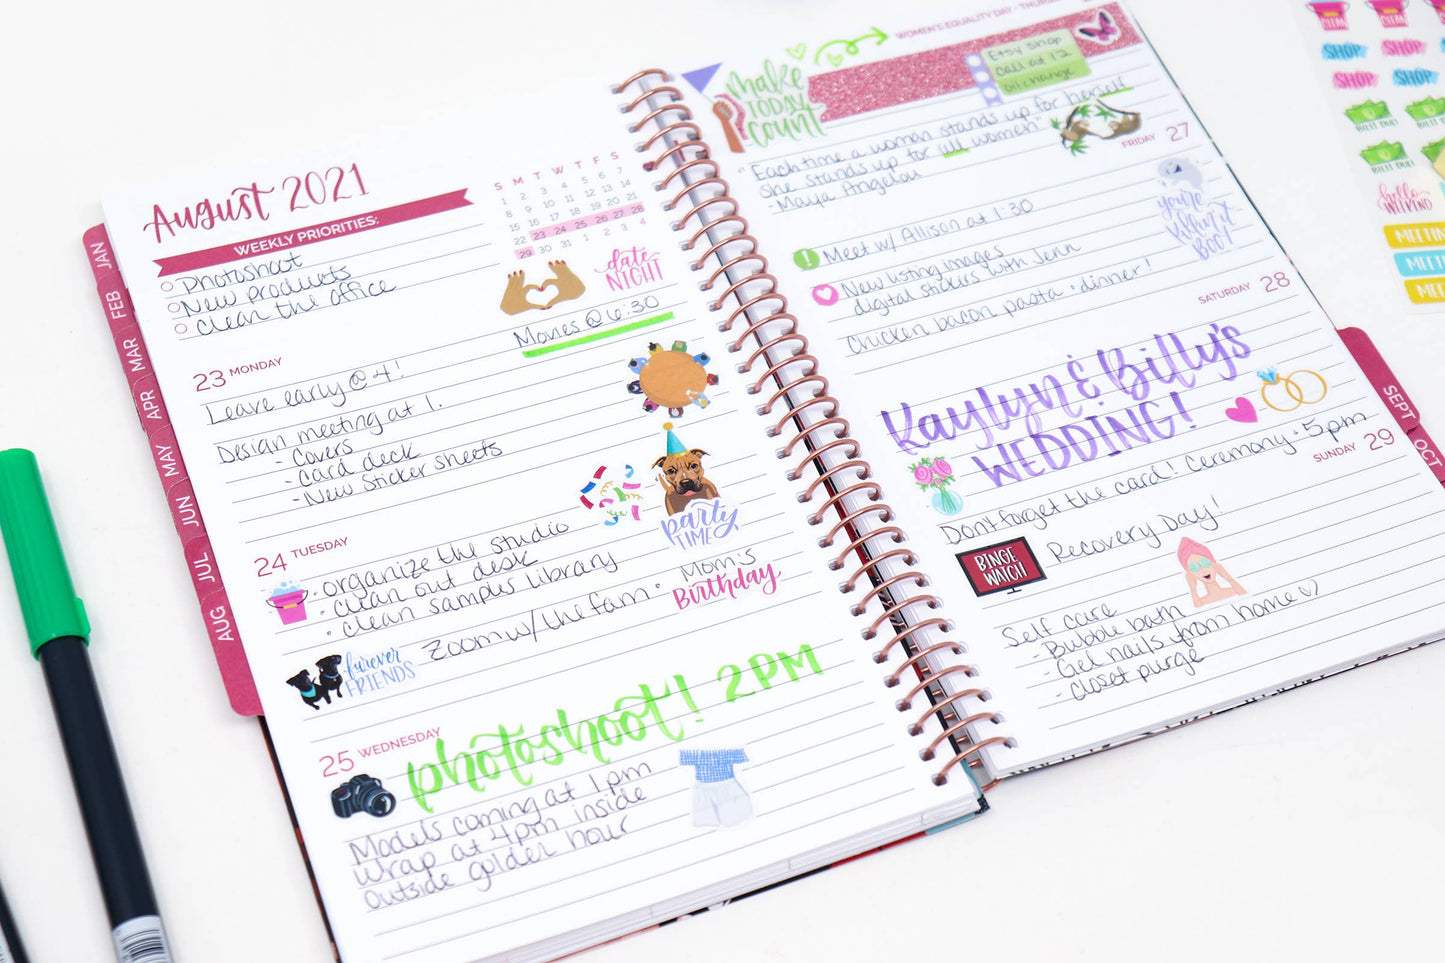 JAN
FEB
MAR
APR
MAY
JUN
JUL
AUG
August 2021
WEEKLY PRIORITIES:
Photoshoot
New products
Clean the office
S M T W T F S
1 2 3 4 5 6 7
8 9 10 11 12 13 14
15 16 17 18 19 20 21
22 23 24 25 26 27 28
29 30 31 1 2 3 4
date
NIGHT
Movies @ 6:30
23 MONDAY
Leave early @ 4!
Design meeting at 1.
- Covers
- Card deck
- New Sticker sheets
party
TIME
24 TUESDAY
• organize the studio
• clean out desk
• clean samples library
Zoom w/ the fam •
Mom's
Birthday
furever
FRIENDS
25 WEDNESDAY
photoshoot! 2PM
Models coming at 1pm
Wrap at 4pm inside
Outside golder hour
make
TODAY
count
WOMEN'S EQUALITY DAY - THURS
Etsy shop
Call at 12
Oil change
"Each time a woman stands up for herself
she stands up for all women"
- Maya Angelou
FRIDAY 27
you're
Killin' it
BOO!
! Meet w/ Allison at 1:30
New listing images
digital stickers with Jenn
Chicken bacon pasta • dinner!
SATURDAY 28
Kaylyn & Billy's
WEDDING!
Don't forget the card! Ceremony • 5pm
SUNDAY 29
BINGE
WATCH
Recovery Day!
Self care
- Bubble bath
- Gel nails from home
- Closet purge
SEPT
OCT
CLEAN
CLEAN
SHOP
SHOP
SHOP
SHOP
BILLS DUE!
BILLS DUE!
hello
WEEKEND
MEETIN
MEET
MEE